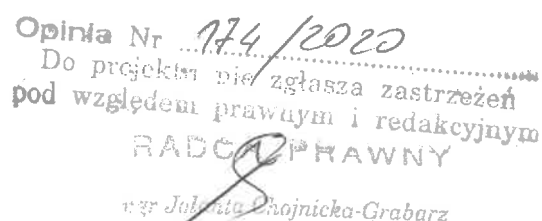 Opinia Nr 174/2020
Do projektu nie zgłasza zastrzeżeń
pod względem prawnym i redakcyjnym
RADCA PRAWNY
mgr Jolanta Chojnicka-Grabarz